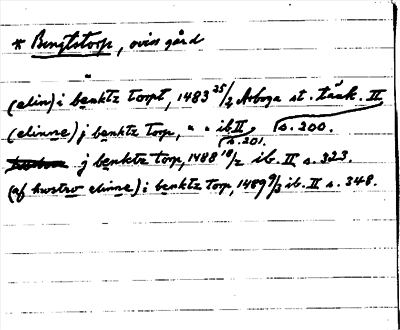 * Bengtstorp, oviss gård
(elin) i benktz torpt, 1483 25/2 Arboga st. tänk. II
(elinne) j benktz torp, " " ib II, s. 200.
s. 201.
j benktz torp, 1488 18/2 ib. II s. 323.
(af hwstrw elinne) i benktz torp, 1489 9/3 ib. II s. 348.